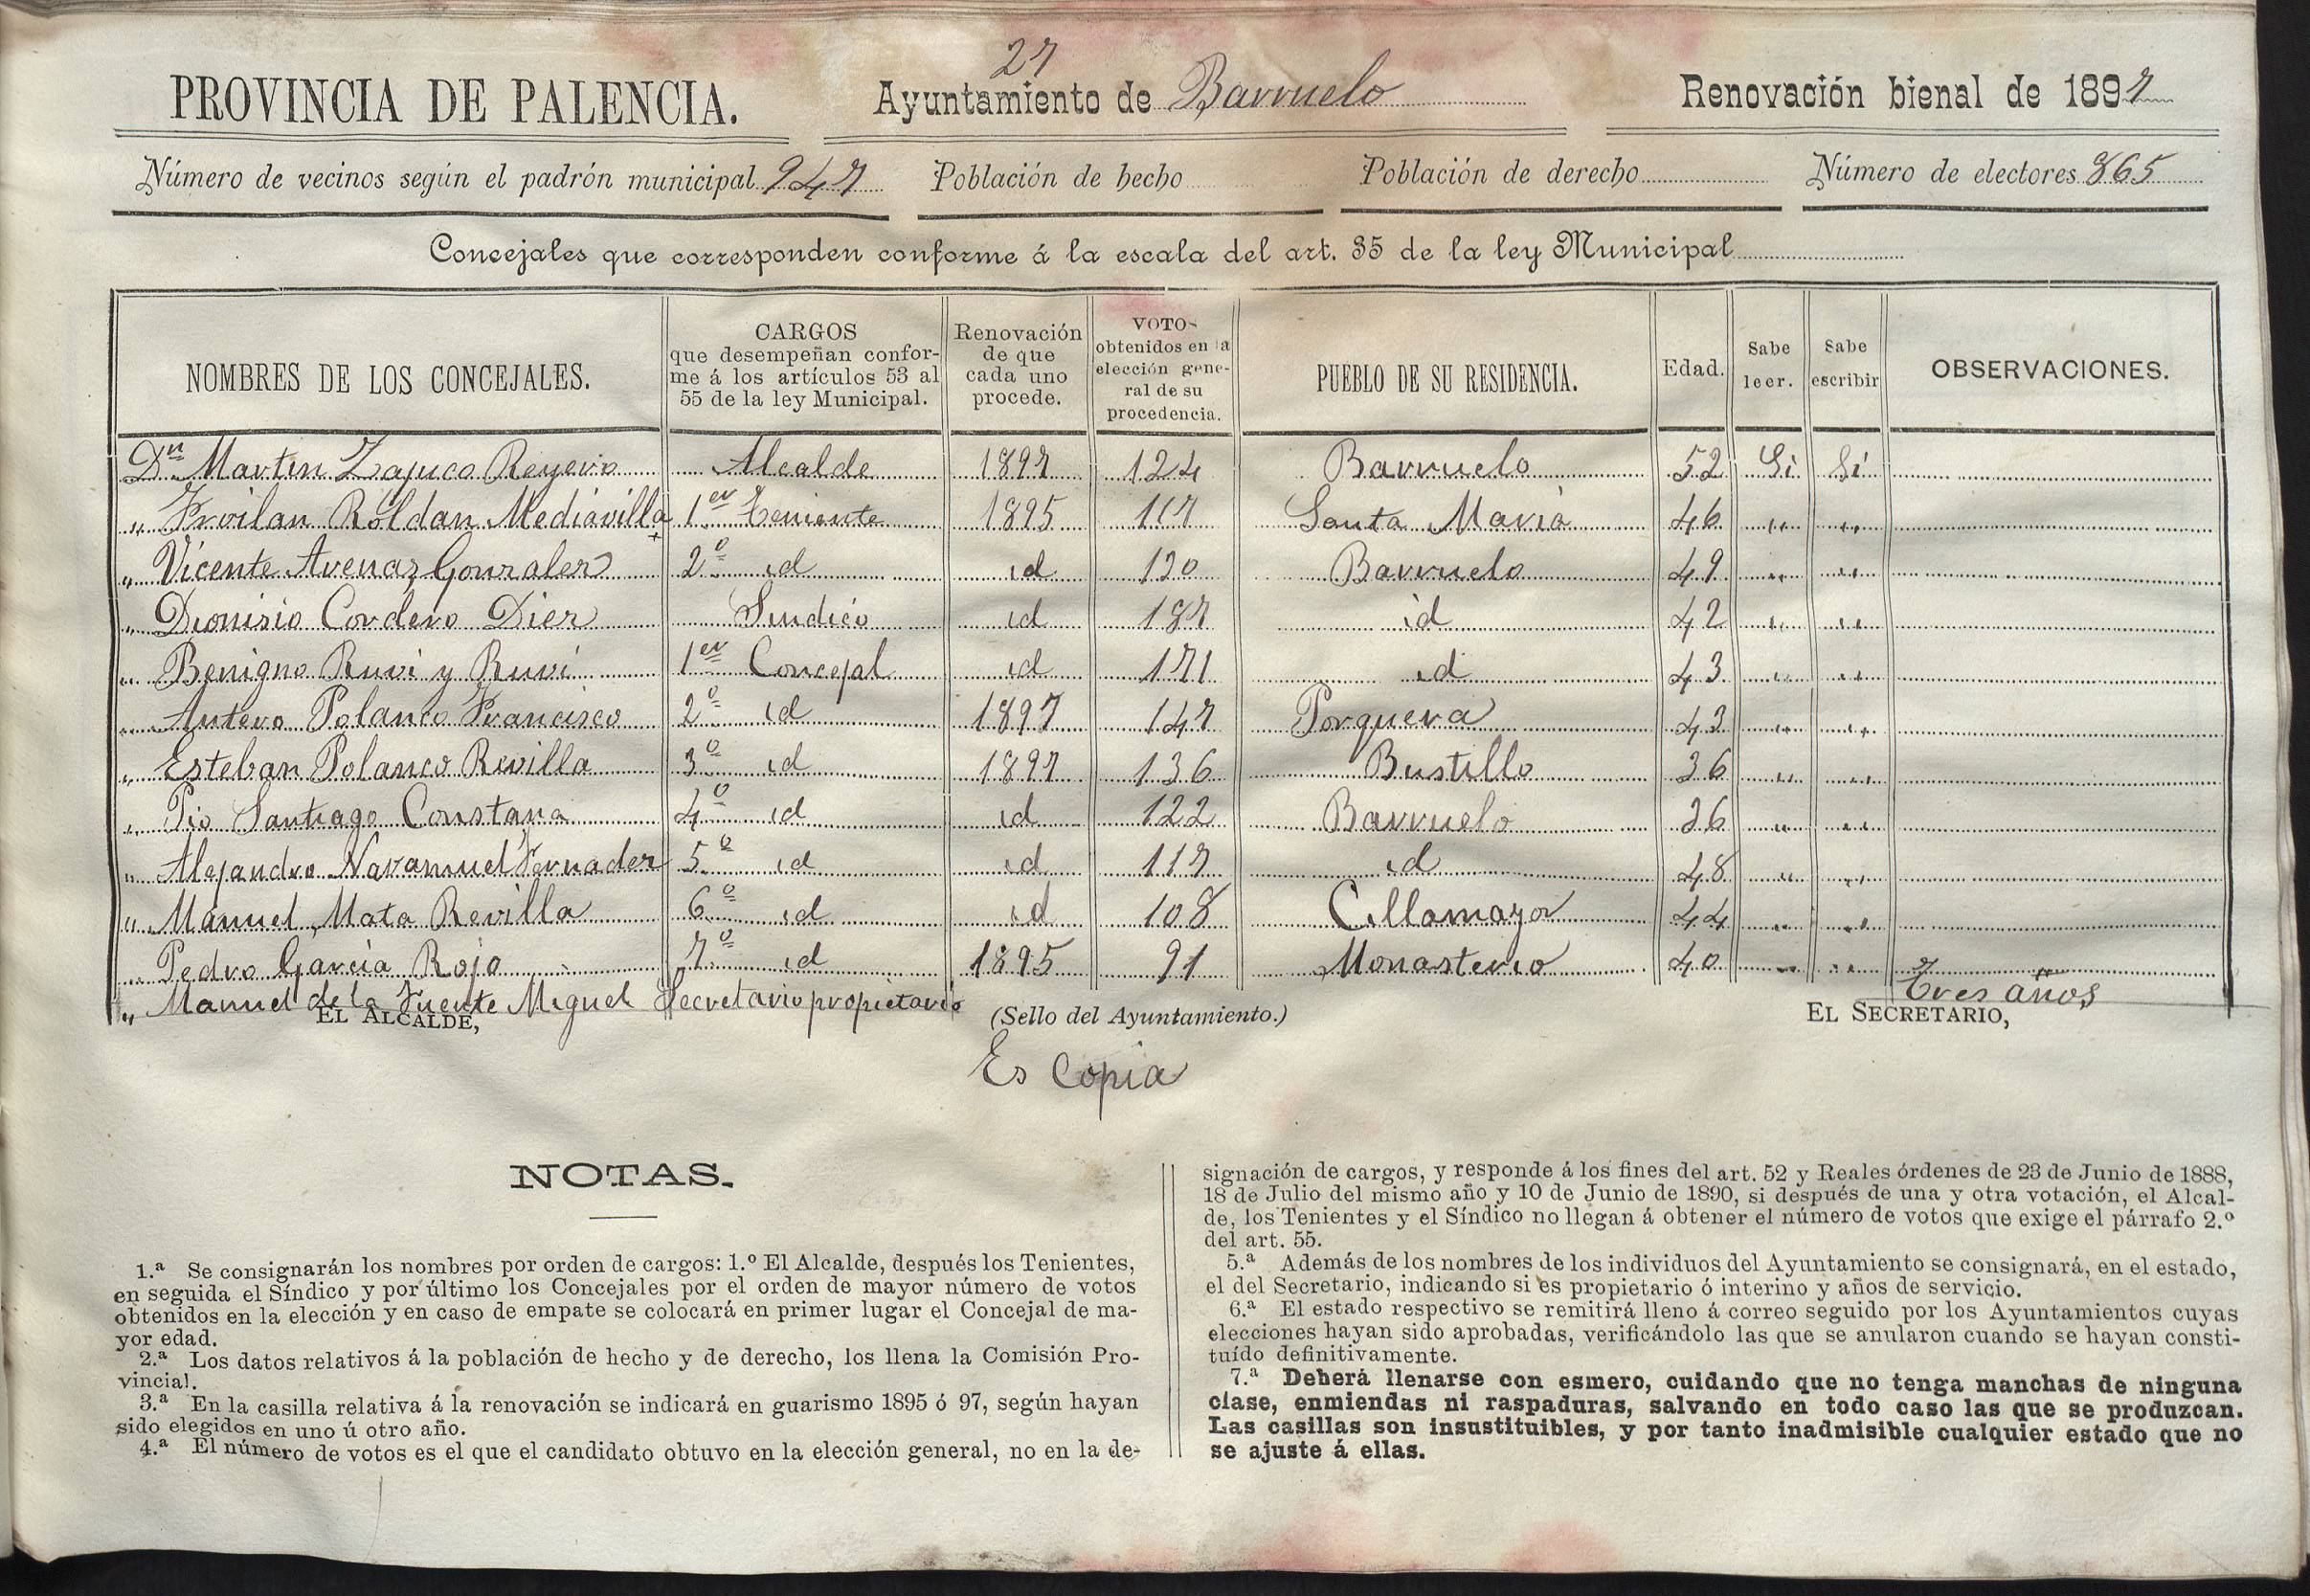 27
PROVINCIA DE PALENCIA. Ayuntamiento de Barruelo Renovación bienal de 1897
Número de vecinos según el padrón municipal 947 Población de hecho Población de derecho Número de electores 865
Concejales que corresponden conforme á la escala del art. 35 de la ley Municipal
NOMBRES DE LOS CONCEJALES.
CARGOS
que desempeñan confor-
me á los artículos 53 al
55 de la ley Municipal.
Renovación
de que
cada uno
procede.
VOTOS
obtenidos en la
elección gene-
ral de su
procedencia.
PUEBLO DE SU RESIDENCIA.
Edad.
Sabe
leer.
Sabe
escribir
OBSERVACIONES.
Dn Martin Reyero Alcalde 1897 124 Barruelo 52 Si Si
" Froilan Roldan Mediavilla 1er Teniente 1895 117 Santa Maria 46 " "
" Vicente Arenaz Gonzalez 2º id id 120 Barruelo 49 " "
" Dionisio Cordero Diez Sindico id 187 id 42 " "
" Benigno Ruvi y Ruvi 1er Concejal id 171 id 43 " "
" Antero Polanco Francisco 2º id 1897 147 Porquera 43 " "
" Esteban Polanco Revilla 3º id 1897 136 Bustillo 36 " "
" Pio Santiago Constana 4º id id 122 Barruelo 36 " "
" Alejandro Navamuel Fernader 5º id id 117 id 48 " "
" Manuel Mata Revilla 6º id id 108 Cillamayor 44 " "
" Pedro Garcia Rojo 7º id 1895 91 Monasterio 40 " "
" Manuel de la Fuente Miguel Secretario propietario Tres años
EL ALCALDE, (Sello del Ayuntamiento.) EL SECRETARIO,
Es Copia
NOTAS.
1.ª Se consignarán los nombres por orden de cargos: 1.º El Alcalde, después los Tenientes,
en seguida el Síndico y por último los Concejales por el orden de mayor número de votos
obtenidos en la elección y en caso de empate se colocará en primer lugar el Concejal de ma-
yor edad.
2.ª Los datos relativos á la población de hecho y de derecho, los llena la Comisión Pro-
vincial.
3.ª En la casilla relativa á la renovación se indicará en guarismo 1895 ó 97, según hayan
sido elegidos en uno ú otro año.
4.ª El número de votos es el que el candidato obtuvo en la elección general, no en la de-
signación de cargos, y responde á los fines del art. 52 y Reales órdenes de 23 de Junio de 1888,
18 de Julio del mismo año y 10 de Junio de 1890, si después de una y otra votación, el Alcal-
de, los Tenientes y el Síndico no llegan á obtener el número de votos que exige el párrafo 2.º
del art. 55.
5.ª Además de los nombres de los individuos del Ayuntamiento se consignará, en el estado,
el del Secretario, indicando si es propietario ó interino y años de servicio.
6.ª El estado respectivo se remitirá lleno á correo seguido por los Ayuntamientos cuyas
elecciones hayan sido aprobadas, verificándolo las que se anularon cuando se hayan consti-
tuído definitivamente.
7.ª Deberá llenarse con esmero, cuidando que no tenga manchas de ninguna
clase, enmiendas ni raspaduras, salvando en todo caso las que se produzcan.
Las casillas son insustituibles, y por tanto inadmisible cualquier estado que no
se ajuste á ellas.